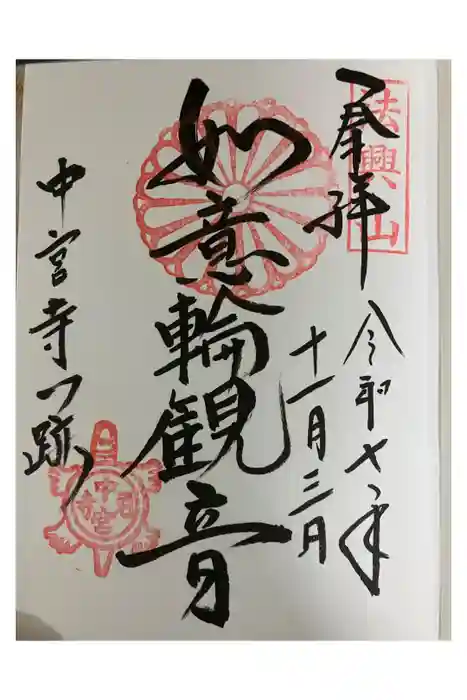 法興山
奉拝
令和七年
十一月三日
如意輪観音
中宮寺跡
中宮